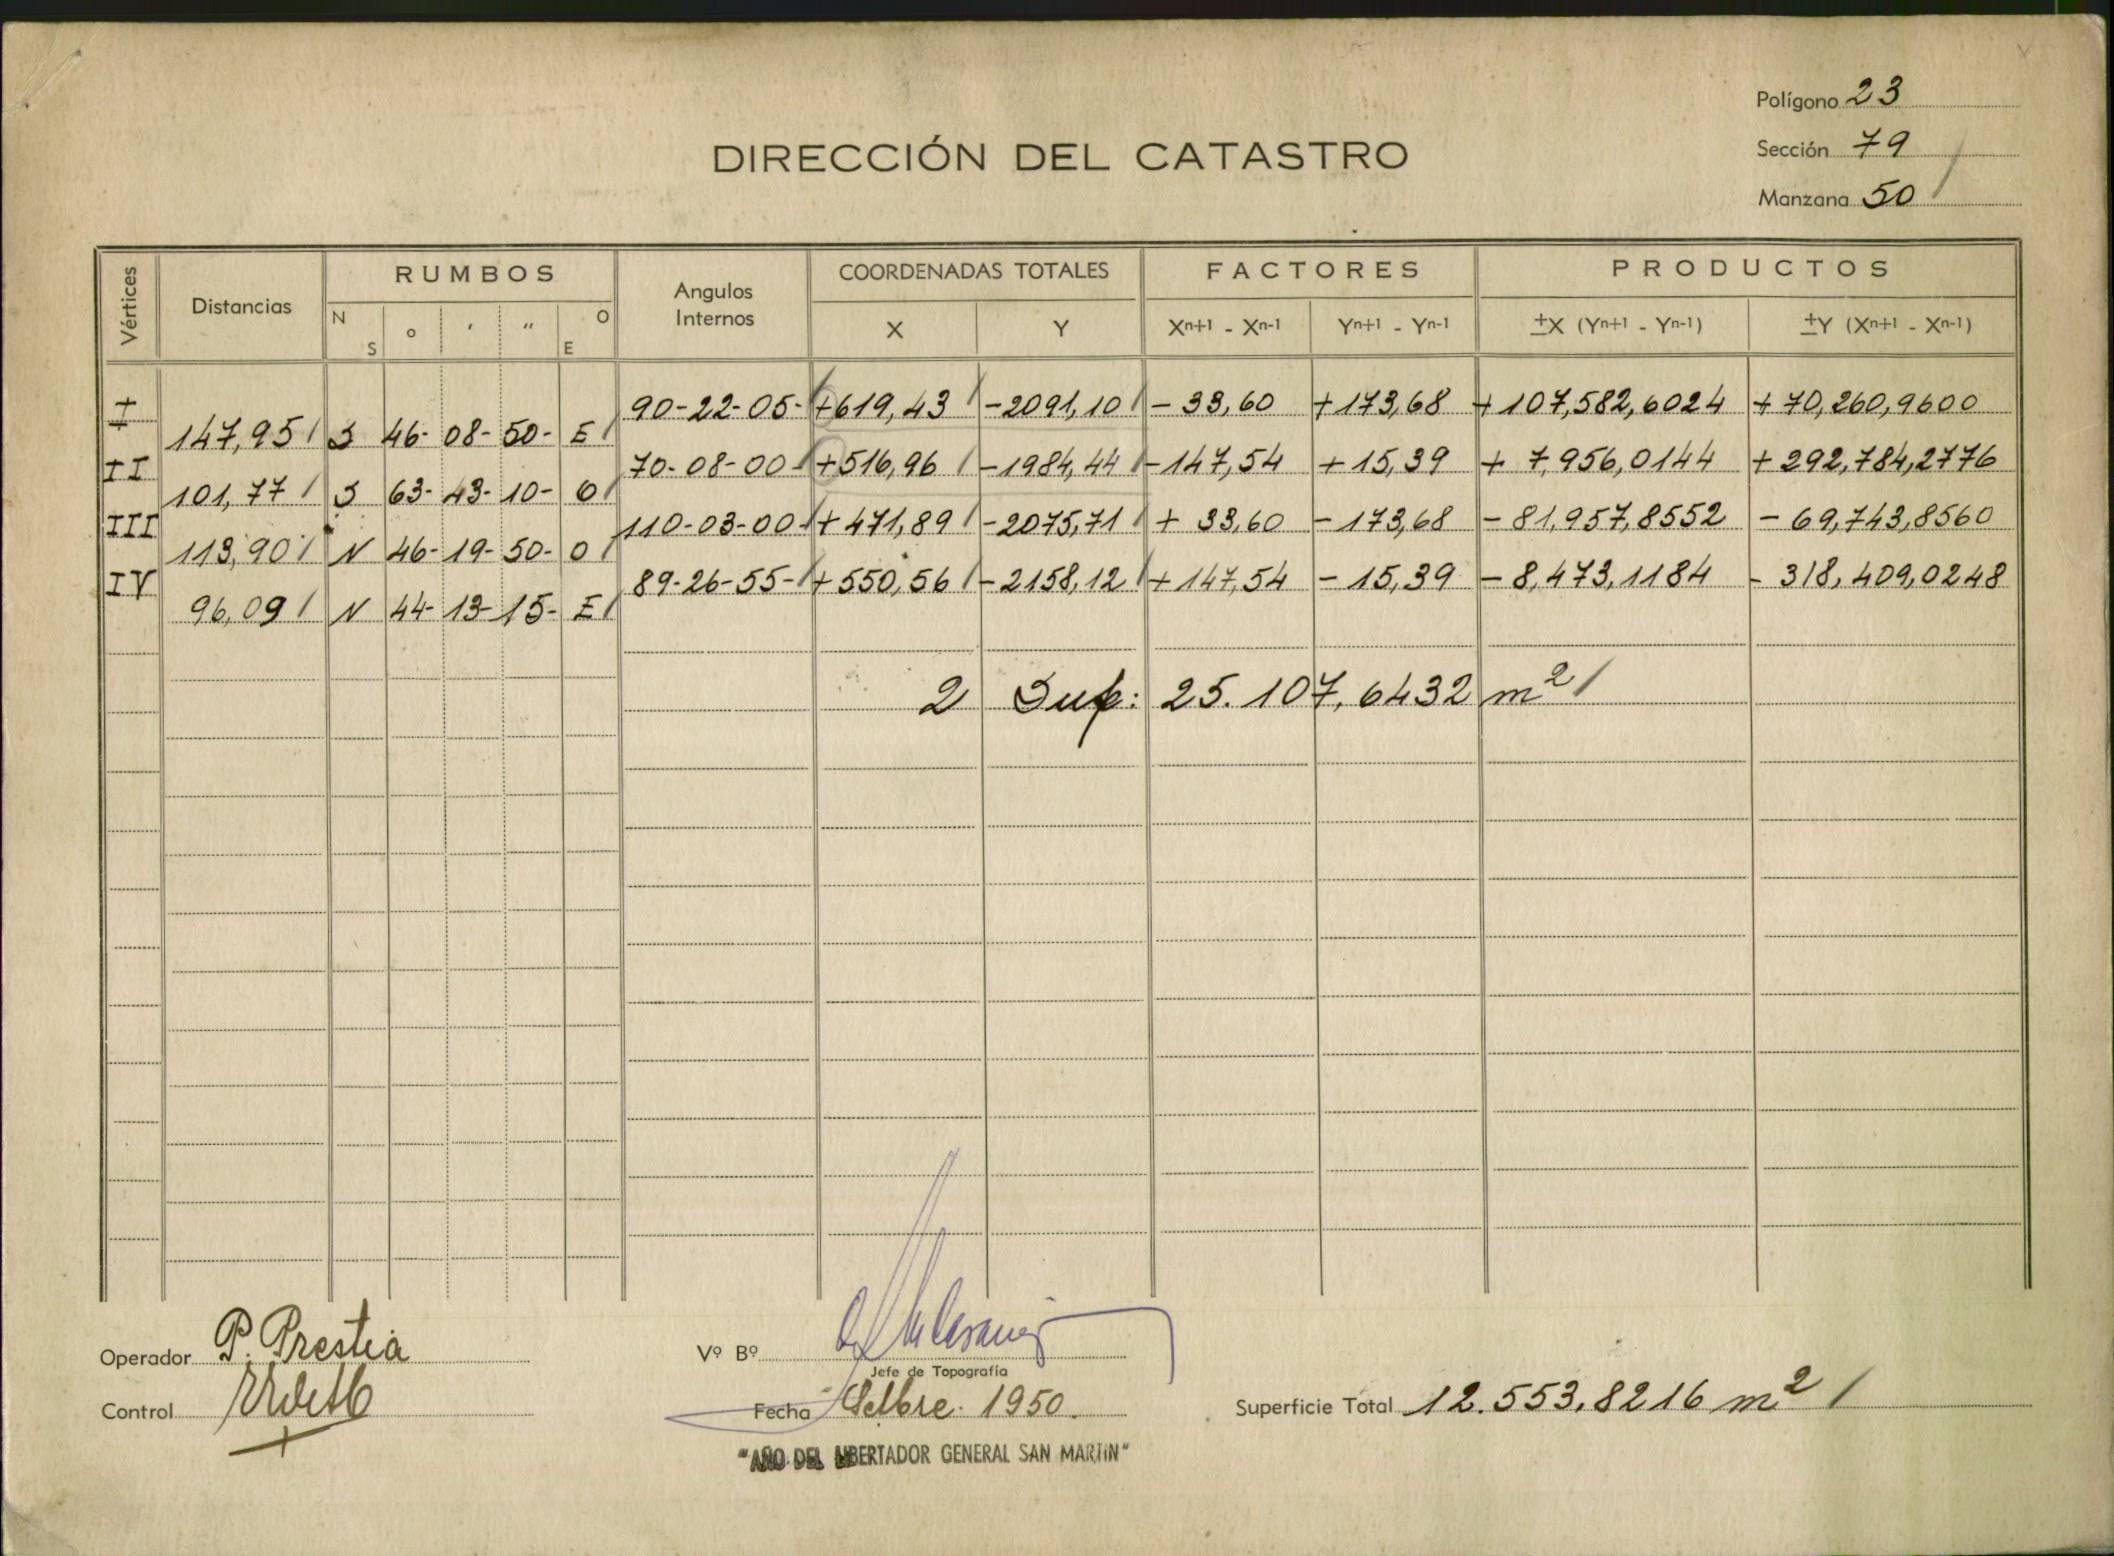 Polígono 23
Sección 79
Manzana 50
DIRECCIÓN DEL CATASTRO
Vértices Distancias RUMBOS Angulos Internos COORDENADAS TOTALES FACTORES PRODUCTOS
N S ° ' " O E X Y Xn+1 - Xn-1 Yn+1 - Yn-1 ±X (Yn+1 - Yn-1) ±Y (Xn+1 - Xn-1)
I 90-22-05- +619,43 -2091,10 -33,60 +173,68 +107,582,6024 +70,260,9600
147,95 S 46- 08- 50- E
II 70-08-00- +516,96 -1984,44 -147,54 +15,39 +7,956,0144 +292,784,2776
101,77 S 63- 43- 10- O
III 110-03-00- +471,89 -2075,71 +33,60 -173,68 -81,957,8552 -69,743,8560
113,90 N 46- 19- 50- O
IV 89-26-55- +550,56 -2158,12 +147,54 -15,39 -8,473,1184 -318,409,0248
96,09 N 44- 13- 15- E
2 Sup: 25.107,6432 m²
Operador P. Prestia
Vº Bº
Jefe de Topografía
Control
Fecha Setbre. 1950.
Superficie Total 12.553,8216 m²
"AÑO DEL LIBERTADOR GENERAL SAN MARTIN"